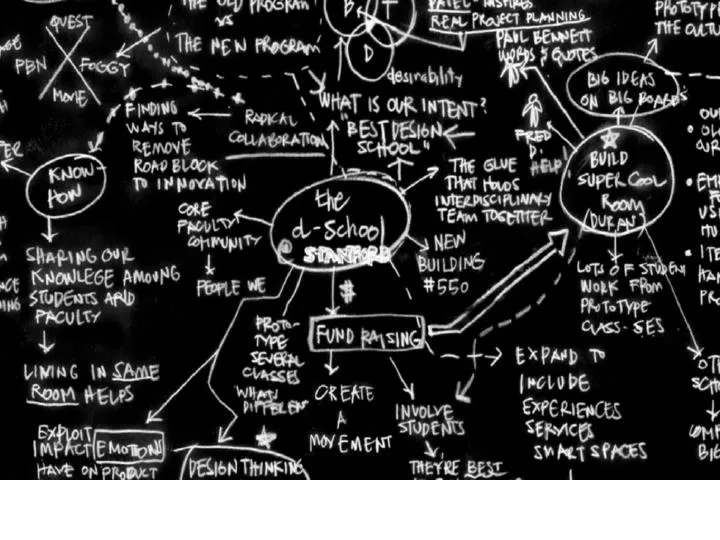 THE OLD PROGRAM
VS
THE NEW PROGRAM
QUEST
PBN
FOGGY
MOVIE
D
desirability
REAL PROJECT PLANNING
PAUL BENNETT
WORDS & QUOTES
PROTOTYP
BIG IDEAS
ON BIG BOARDS
FINDING
WAYS TO
REMOVE
ROAD BLOCK
TO INNOVATION
RADICAL
COLLABORATION
WHAT IS OUR INTENT?
"BEST DESIGN
SCHOOL"
FRED
D.
HELP!
BUILD
SUPER COOL
ROOM
(DURAN)
KNOW-
HOW
THE GLUE
THAT HOLDS
INTERDISCIPLINARY
TEAM TOGETHER
the
d-School
STANFORD
CORE
FACULTY
COMMUNITY
PEOPLE WE
NEW
BUILDING
#550
LOTS OF STUDENT
WORK FROM
PROTOTYPE
CLASS-SES
SHARING OUR
KNOWLEGE AMOUNG
STUDENTS AND
FACULTY
LIVING IN SAME
ROOM HELPS
EXPLOIT
IMPACT EMOTIONS
HAVE ON PRODUCT
$
FUND RAISING
PROTO-
TYPE
SEVERAL
CLASSES
"WHATS
DIFFEREN
DESIGN THINKING
CREATE
A
MOVEMENT
INVOLVE
STUDENTS
THEY'RE BEST
EXPAND TO
INCLUDE
EXPERIENCES
SERVICES
SMART SPACES